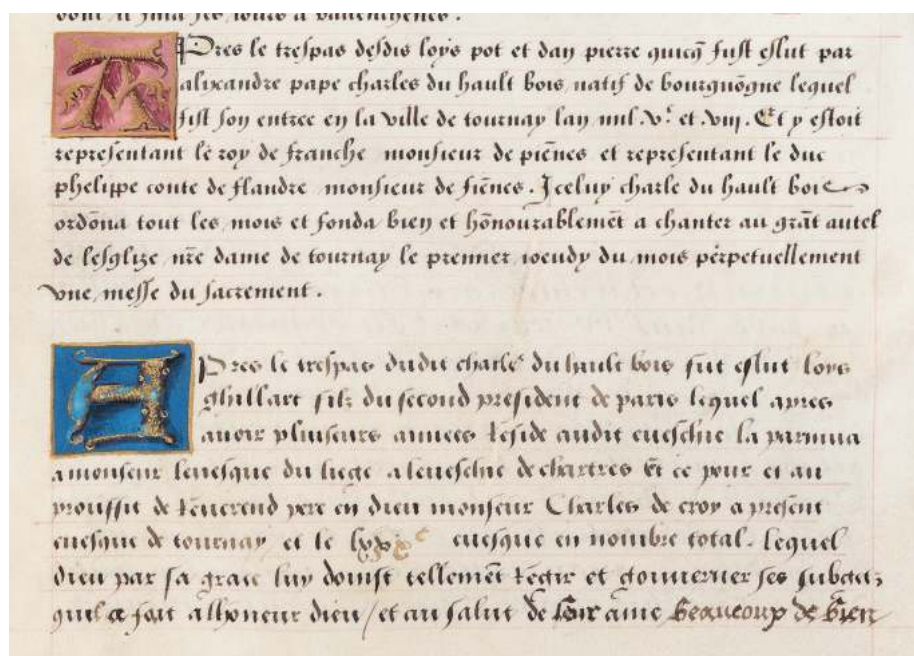 dont il fina ses jours a vallenchenes.
Apres le trespas desdis loys pot et dan pierre quicq fust eslut par
alixandre pape charles du hault bois natif de bourguōgne lequel
fist son entree en la ville de tournay lan mil.vᶜ. et .viij. Et y estoit
representant le roy de franche monsieur de piēnes et representant le duc
phelippe conte de flandre monsieur de fiēnes. Iceluy charle du hault bois
ordōna tout les mois et fonda bien et hōnourablemēt a chanter au grāt autel
de lesglize nr̄e dame de tournay le premier ioeudy du mois perpetuellement
vne messe du sacrement.
Apres le trespas dudit charle du hault bois fut eslut loys
ghillart filz du second president de paris lequel apres
auoir pluiseurs annees reside audit eueschie la parmua
a monseur leuesque du liege a leueschie de chartres Et ce pour et au
prouffit de reuerend pere en dieu monseur Charles de croy a present
euesque de tournay et le euesque en nombre total. lequel
dieu par sa grace luy doinst tellemēt regir et gouuerner ses subgetz
quil ce soit alhoneur dieu / et au salut de son ame Beaucoup de bien